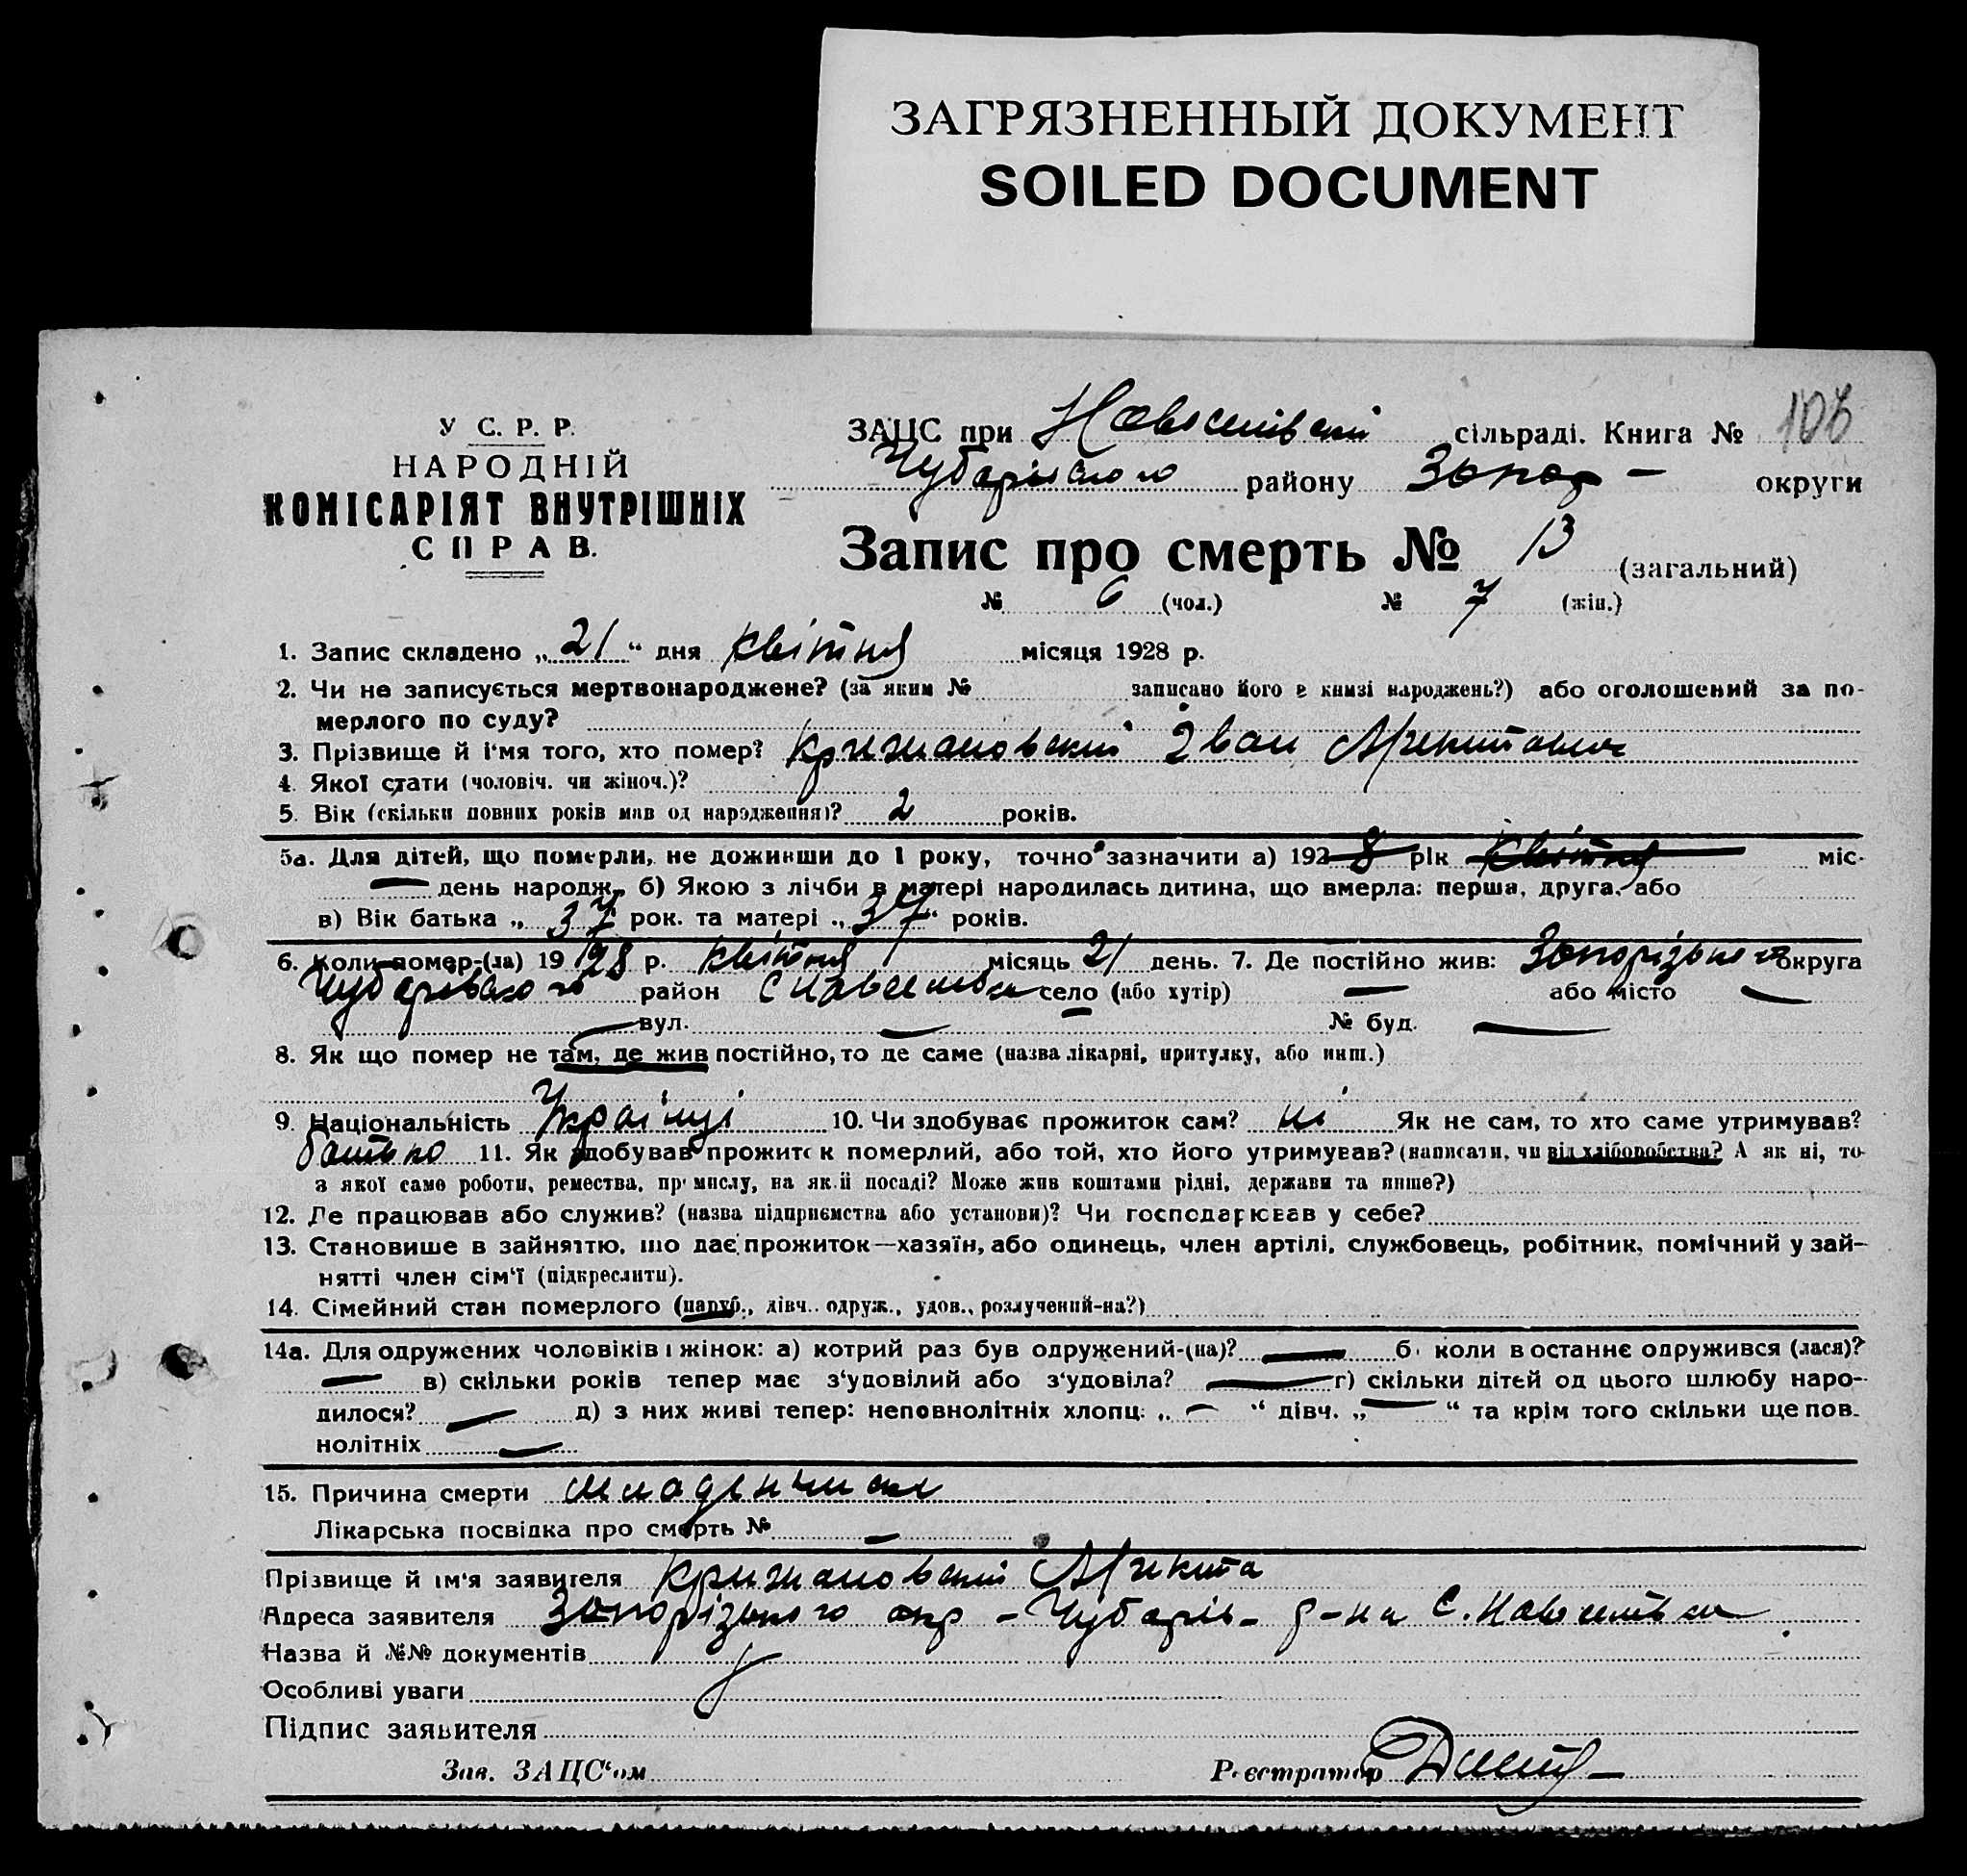 ЗАГРЯЗНЕННЫЙ ДОКУМЕНТ
SOILED DOCUMENT
У С. Р. Р.
НАРОДНІЙ
КОМІСАРІЯТ ВНУТРІШНІХ
СПРАВ.
ЗАЦС при Новоселівській сільраді. Книга № 106
Чубарівського району Запор- округи
Запис про смерть № 13 (загальний)
№ 6 (чол.) № 7 (жін.)
1. Запис складено „21“ дня квітня місяця 1928 р.
2. Чи не записується мертвонароджене? (за яким № записано його в книзі народжень?) або оголошений за по-
мерлого по суду?
3. Прізвище й і'мя того, хто помер? Крижановський Іван
4. Якої стати (чоловіч. чи жіноч.)?
5. Вік (скільки повних років мав од народження)? 2 років.
5а. Для дітей, що померли, не доживши до 1 року, точно зазначити а) 1928 рік квітня міс.
день народж., б) Якою з лічби в матері народилась дитина, що вмерла: перша, друга, або
в) Вік батька „37“ рок. та матері „37“ років.
6. Коли помер-(ла) 19 1928 р. квітня місяць 21 день. 7. Де постійно жив: Запорізького округа
Чубарівського район с Новоселівка село (або хутір) — або місто —
вул. — № буд. —
8. Як що помер не там, де жив постійно, то де саме (назва лікарні, притулку, або инш.)
9. Національність Українці 10. Чи здобуває прожиток сам? ні Як не сам, то хто саме утримував?
батько 11. Як здобував прожиток померлий, або той, хто його утримував? (написати, чи від хліборобства? А як ні, то
з якої саме роботи, ремества, промислу, на якій посаді? Може жив коштами рідні, держави та инше?)
12. Де працював або служив? (назва підприємства або установи)? Чи господарював у себе?
13. Становише в зайняттю, що дає прожиток—хазяїн, або одинець, член артілі, службовець, робітник, помічний у зай-
нятті член сім'ї (підкреслити).
14. Сімейний стан померлого (паруб., дівч., одруж., удов., розлучений-на?)
14а. Для одружених чоловіків і жінок: а) котрий раз був одружений-(на)? — б) коли востаннє одружився (лася)?
— в) скільки років тепер має з'удовілий або з'удовіла? — г) скільки дітей од цього шлюбу наро-
дилося? — д) з них живі тепер: неповнолітніх хлопц. „—“ дівч. „—“ та крім того скільки ще пов-
нолітніх —
15. Причина смерти младенчиская
Лікарська посвідка про смерть № —
Прізвище й ім'я заявителя Крижановський
Адреса заявителя Запорізького окр - Чубарів- р-на с. Новоселівка
Назва й №№ документів
Особливі уваги
Підпис заявителя
Зав. ЗАЦС'ом Реєстратор